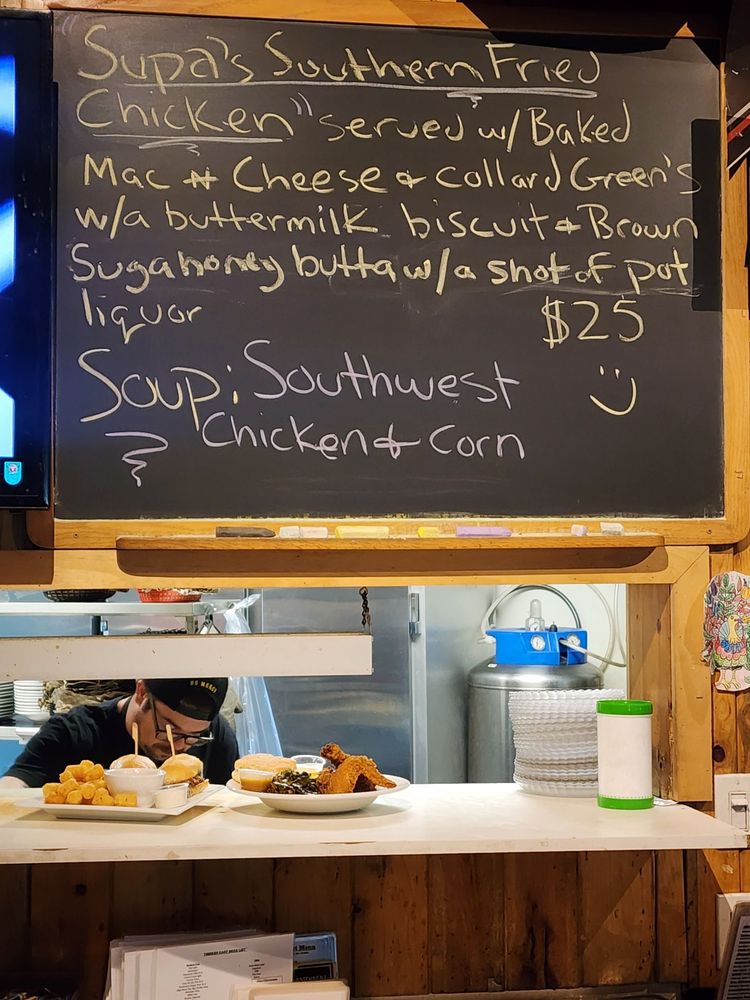 "Supa's Southern Fried
Chicken" served w/ Baked
Mac N Cheese & collard Green's
w/a buttermilk biscuit & Brown
Suga honey butta w/a shot of pot
liquor $25
Soup: Southwest
Chicken & Corn